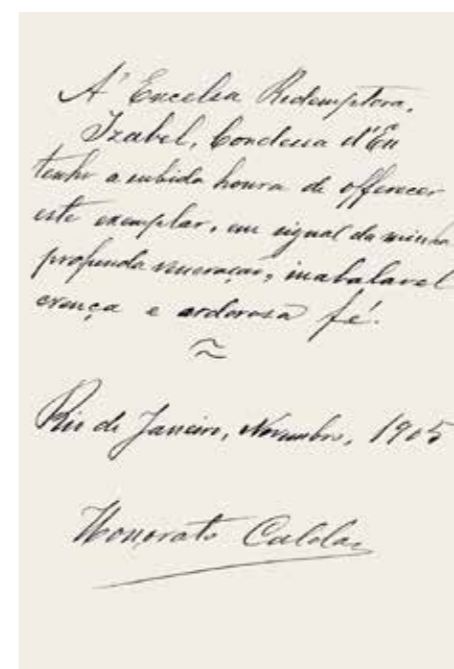 A' Excelsa Redemptora,
Izabel, Condessa d'Eu
tenho a subida honra de offerecer
este exemplar, em signal da minha
profunda veneração, inabalavel
crença e ardorosa fé.
Rio de Janeiro, Novembro, 1905
Honorato Caldas